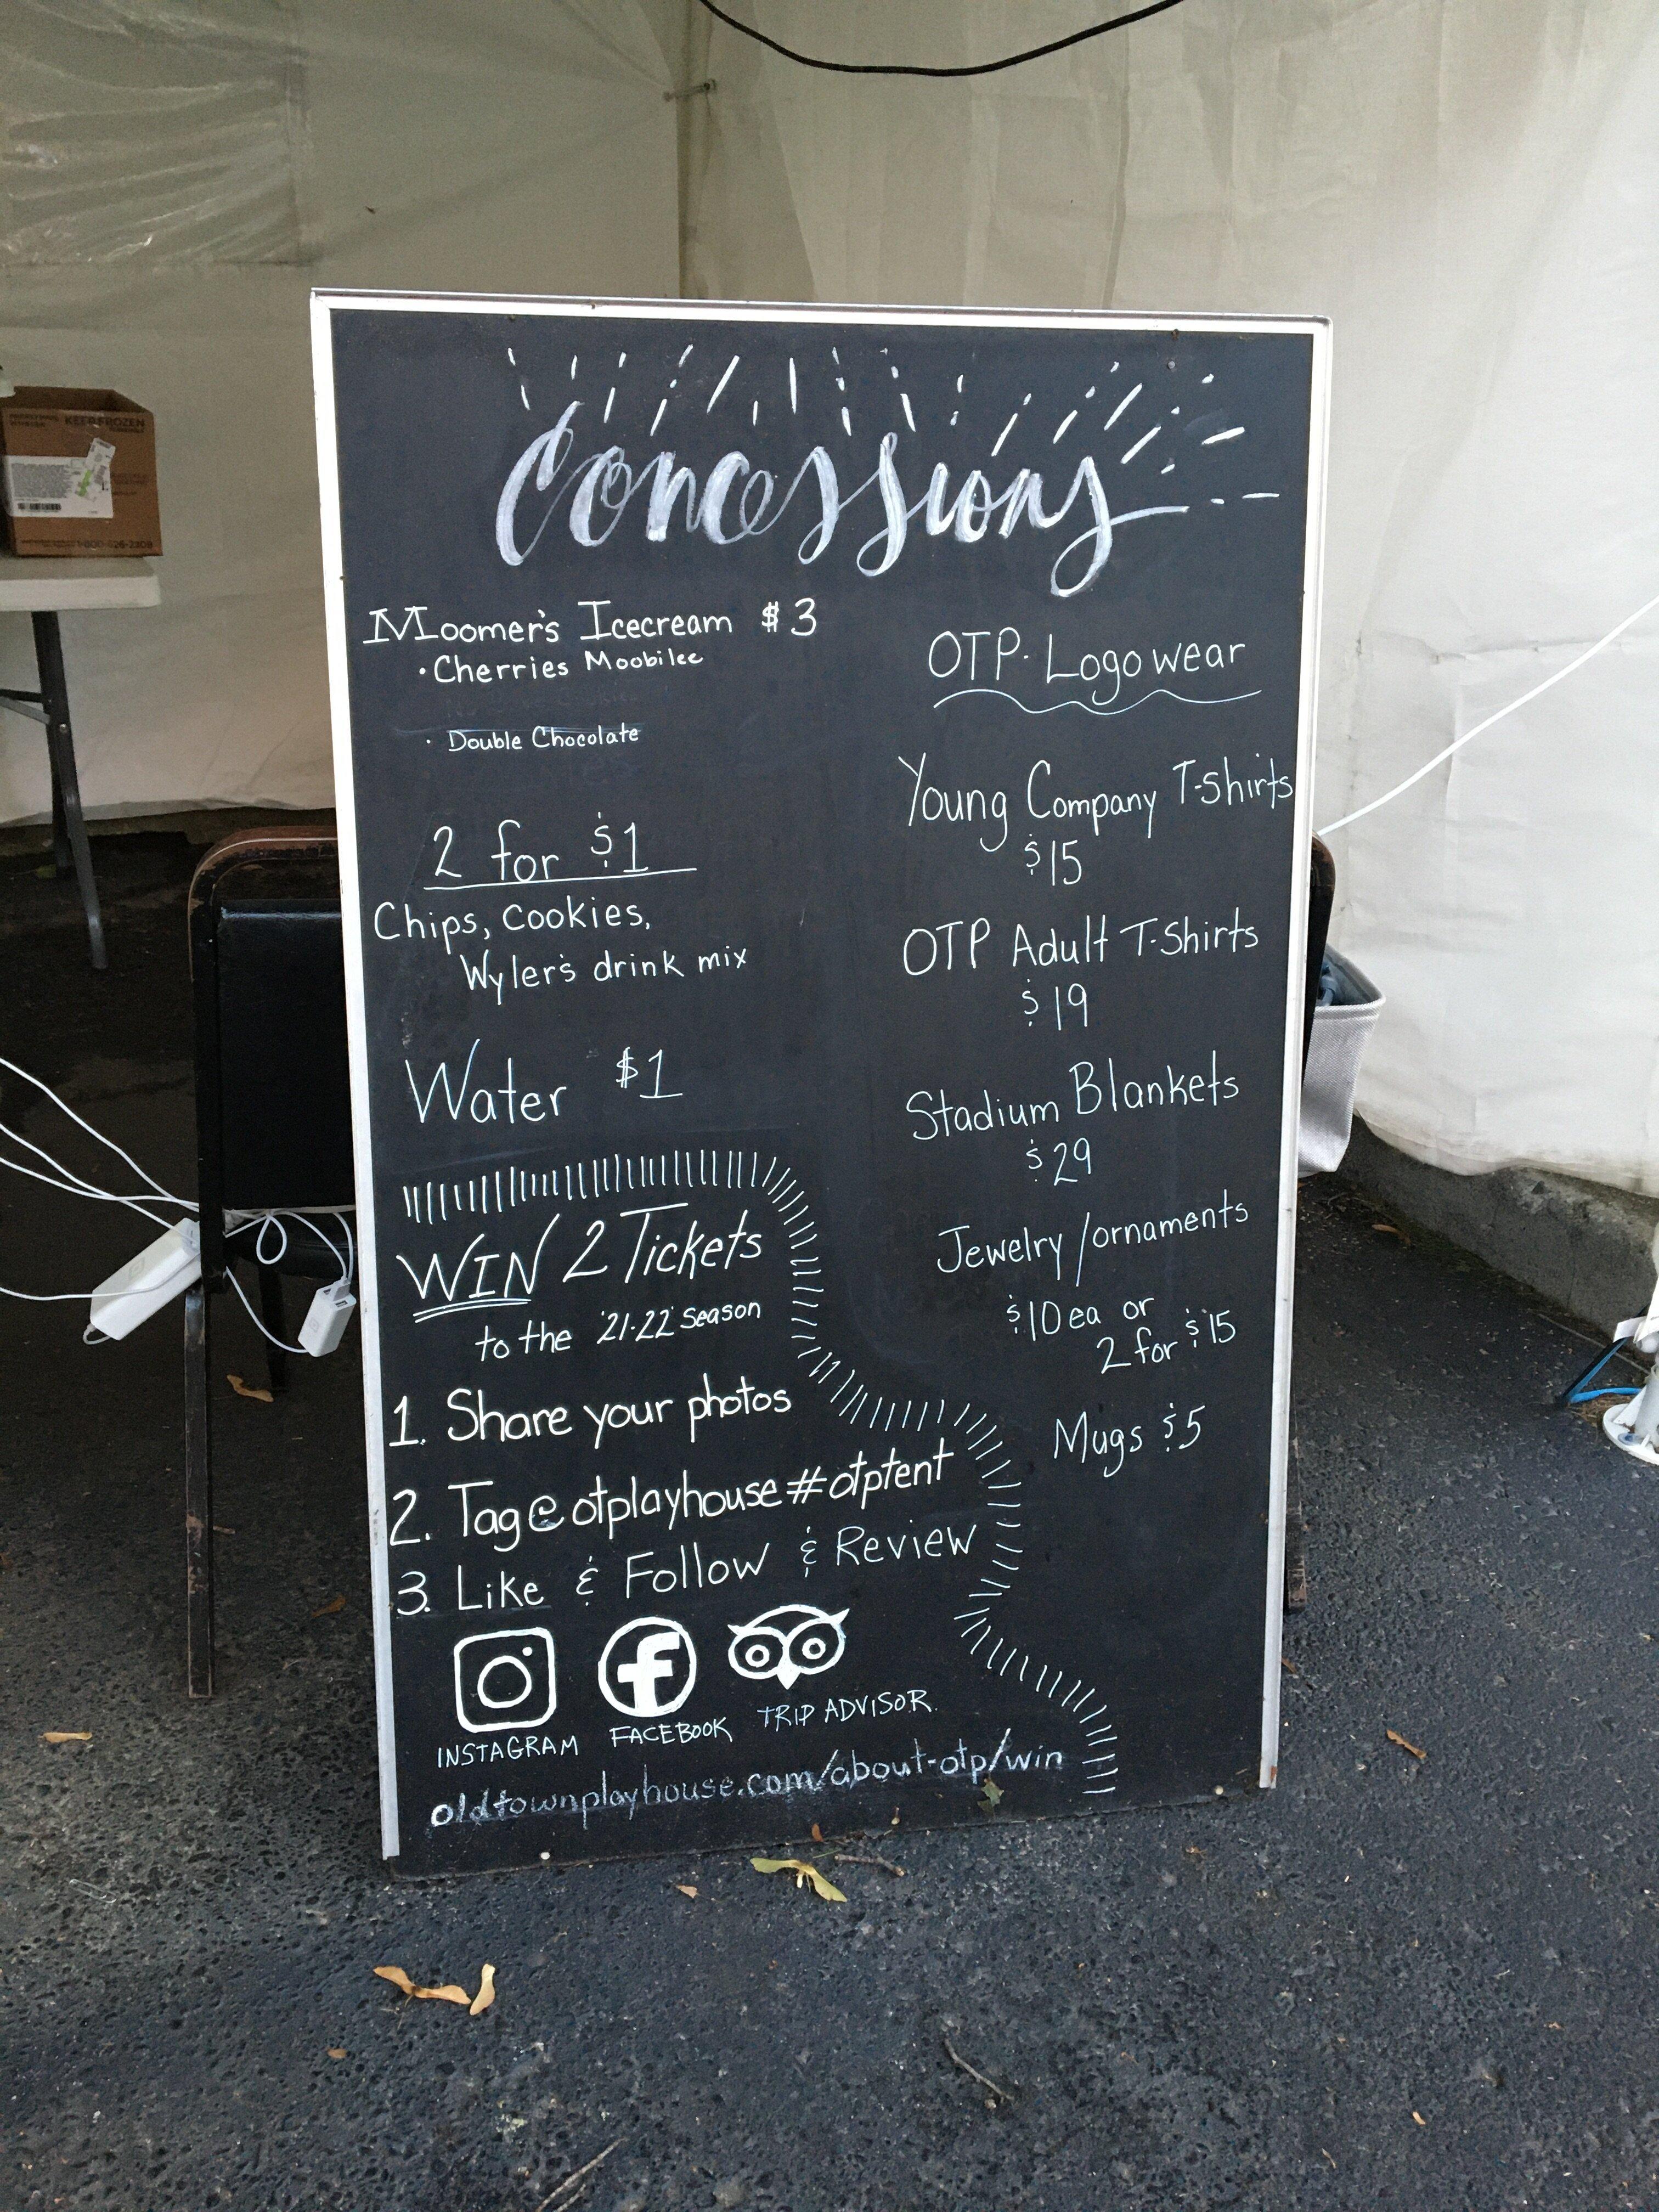 KEEP FROZEN
1-800-626-2309
Concessions
Moomer's Icecream $3
• Cherries Moobilee
• Double Chocolate
2 for $1
Chips, Cookies,
Wyler's drink mix
Water $1
WIN 2 Tickets
to the '21-22' Season
1. Share your photos
2. Tag @otplayhouse #otptent
3. Like & Follow & Review
INSTAGRAM FACEBOOK TRIP ADVISOR
oldtownplayhouse.com/about-otp/win
OTP. Logowear
Young Company T-Shirts
$15
OTP Adult T-Shirts
$19
Stadium Blankets
$29
Jewelry/ornaments
$10 ea or
2 for $15
Mugs $5